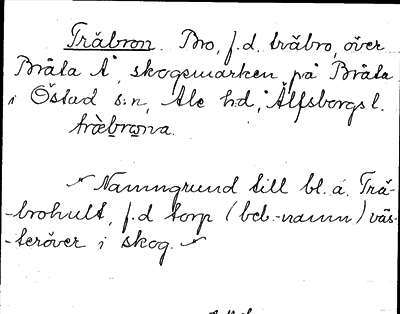 Träbron. Bro, f.d. träbro, över
Bråta Å, skogsmarken på Bråta
i Östad s:n, Ale hd, Älfsborgs l.
träbrona.
Namngrund till bl. a. Trä-
-brohult, f.d torp (beb.-namn) väs-
-teröver i skog.